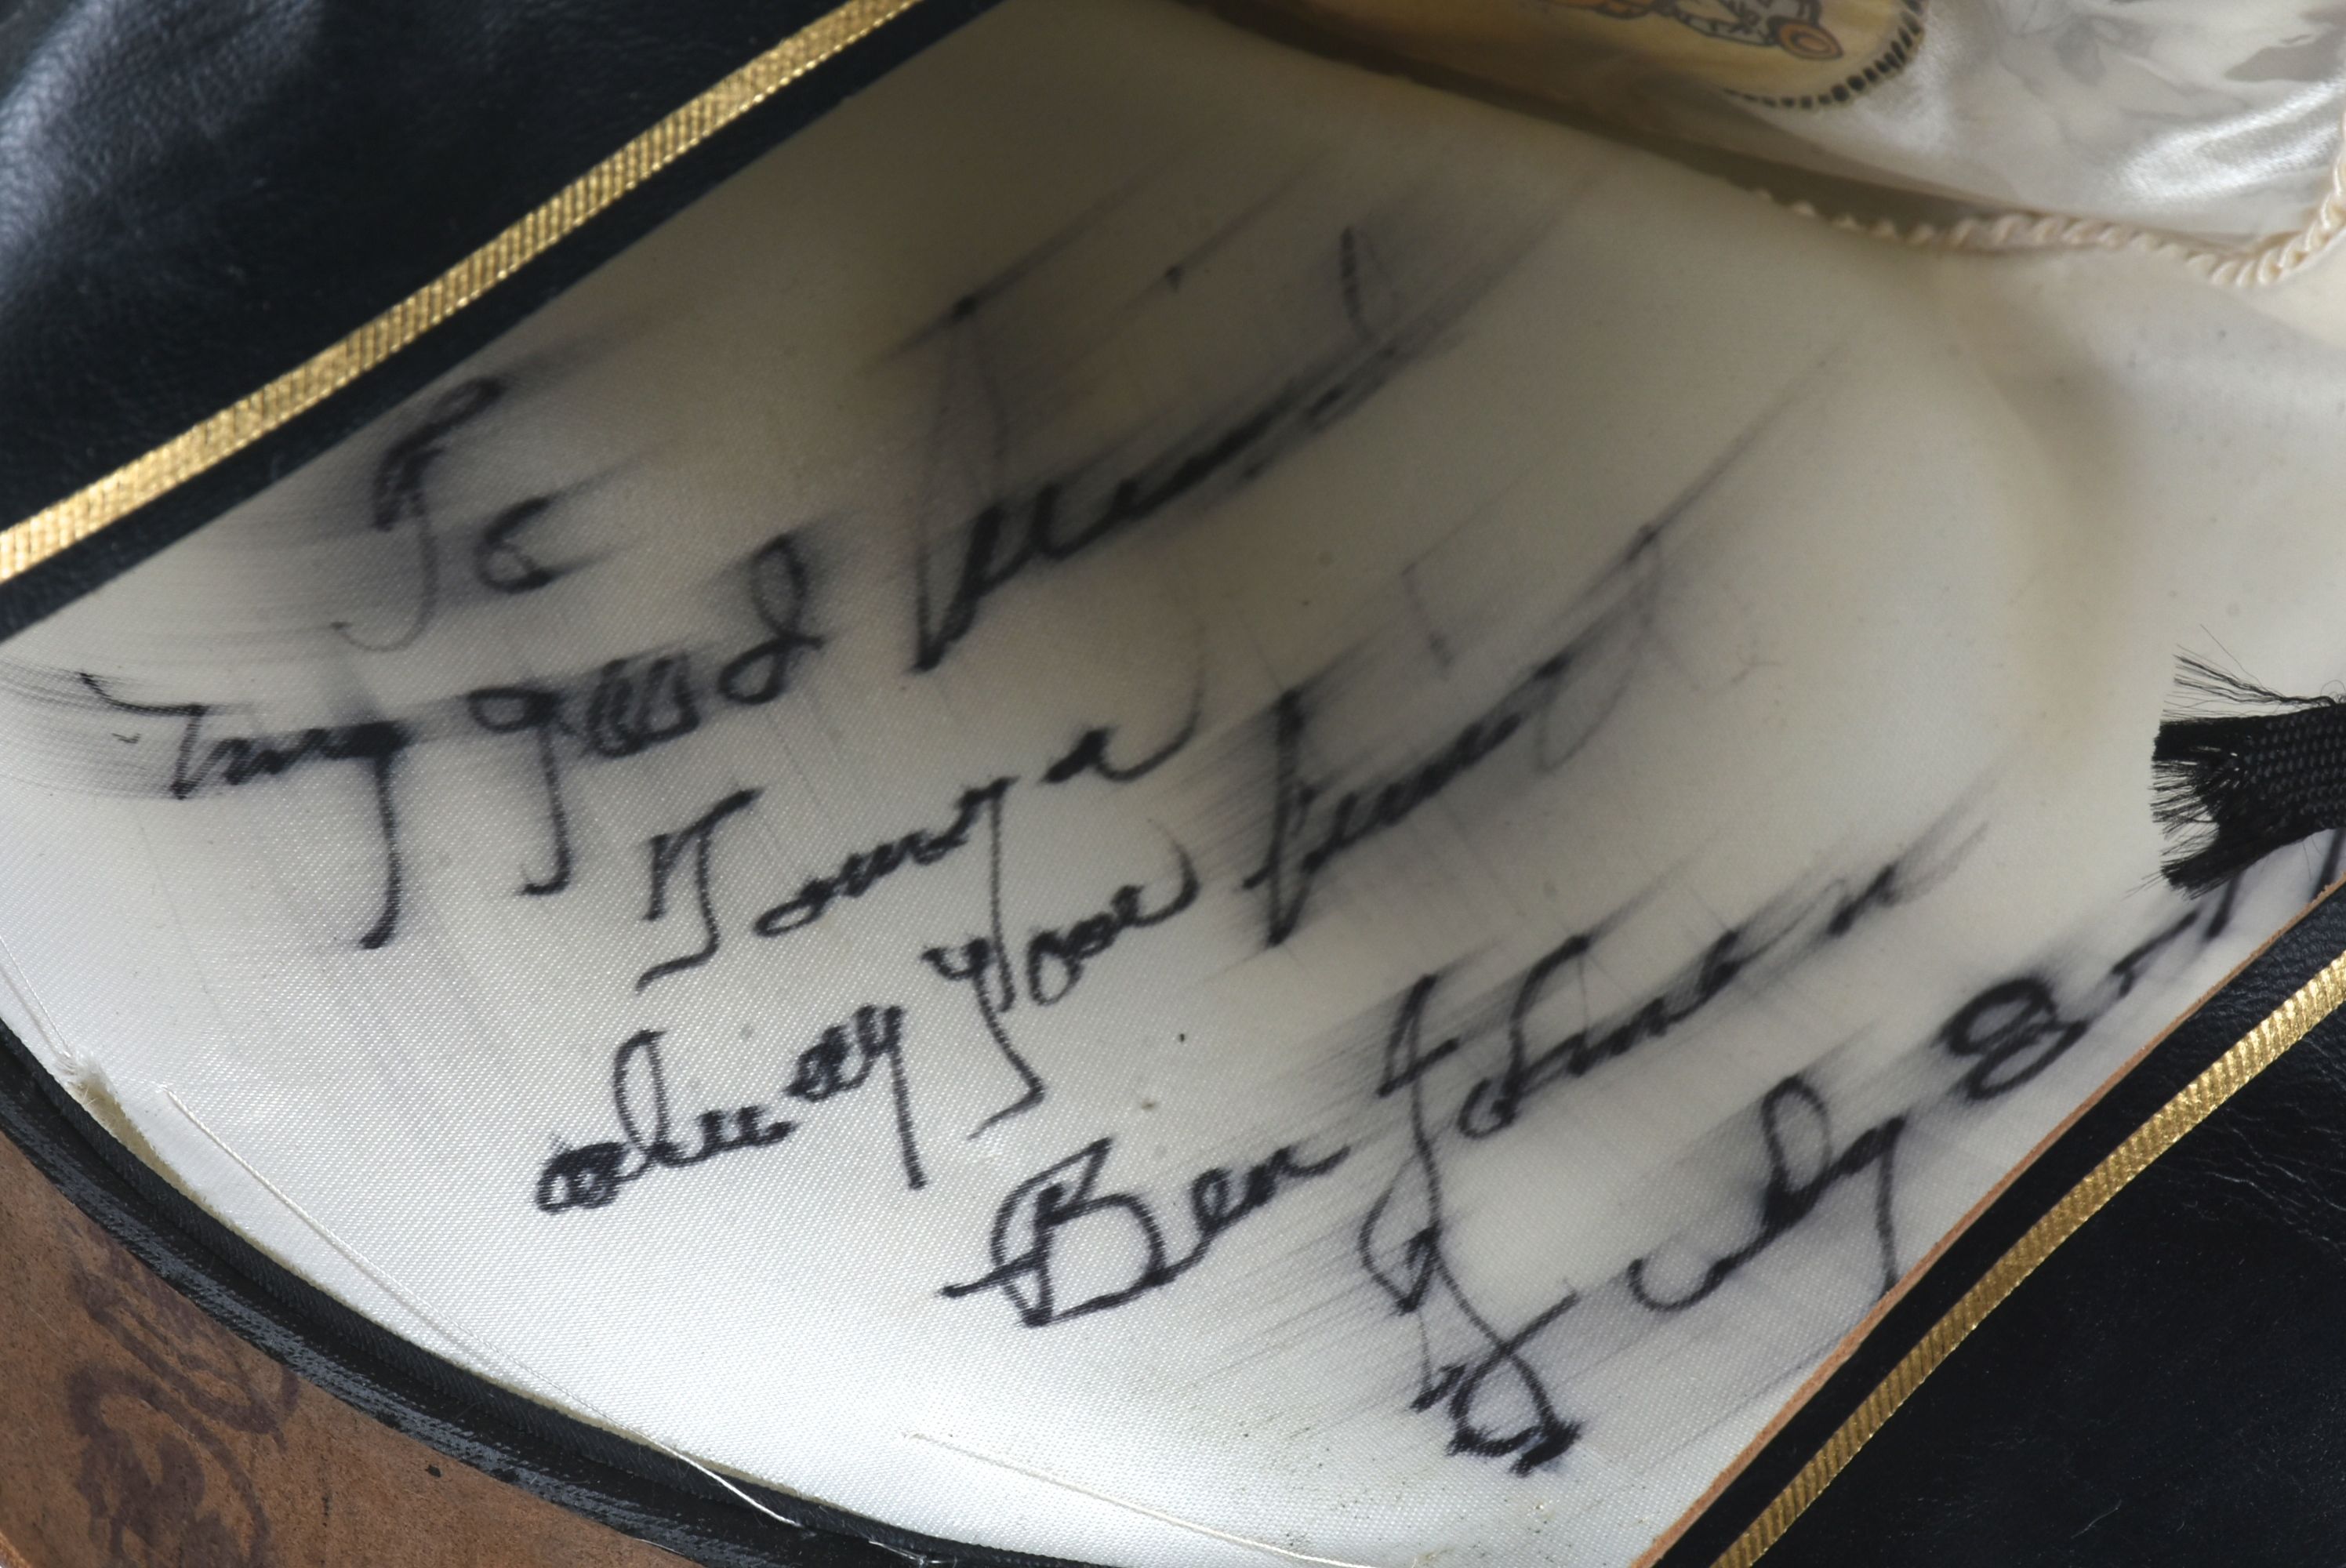 To
my good friend
Tommy
always your friend
Ben Johnson
July 8